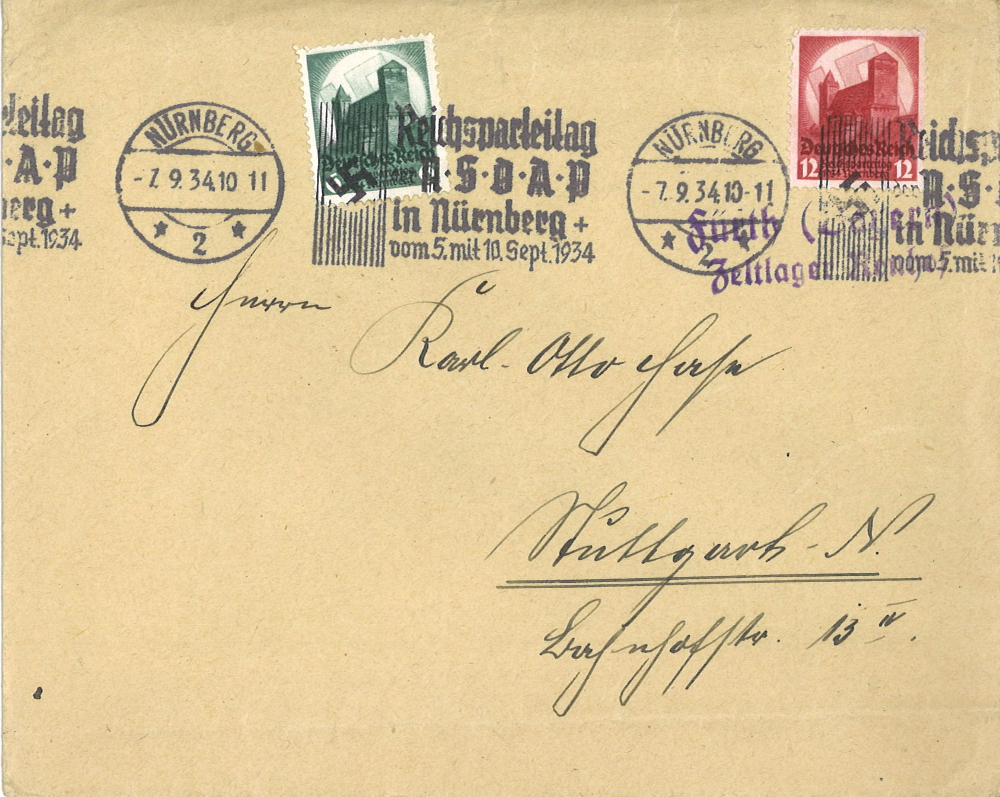 rteitag
· A · P
erg +
Sept. 1934
NÜRNBERG
- 7. 9. 34. 10 11
* 2 *
Deutsches Reich
Reichsparteitag
N · S · D · A · P
in Nürnberg +
vom 5. mit 10. Sept. 1934
NÜRNBERG
- 7. 9. 34. 10 - 11
* 2 *
Deutsches Reich
12 12
Reichsp
N · S ·
in Nür
vom 5. mit 1
Fürth
Zeltlager
Herrn
Karl-Otto Hase
Stuttgart-N.
Bahnhofstr. 13 IV.